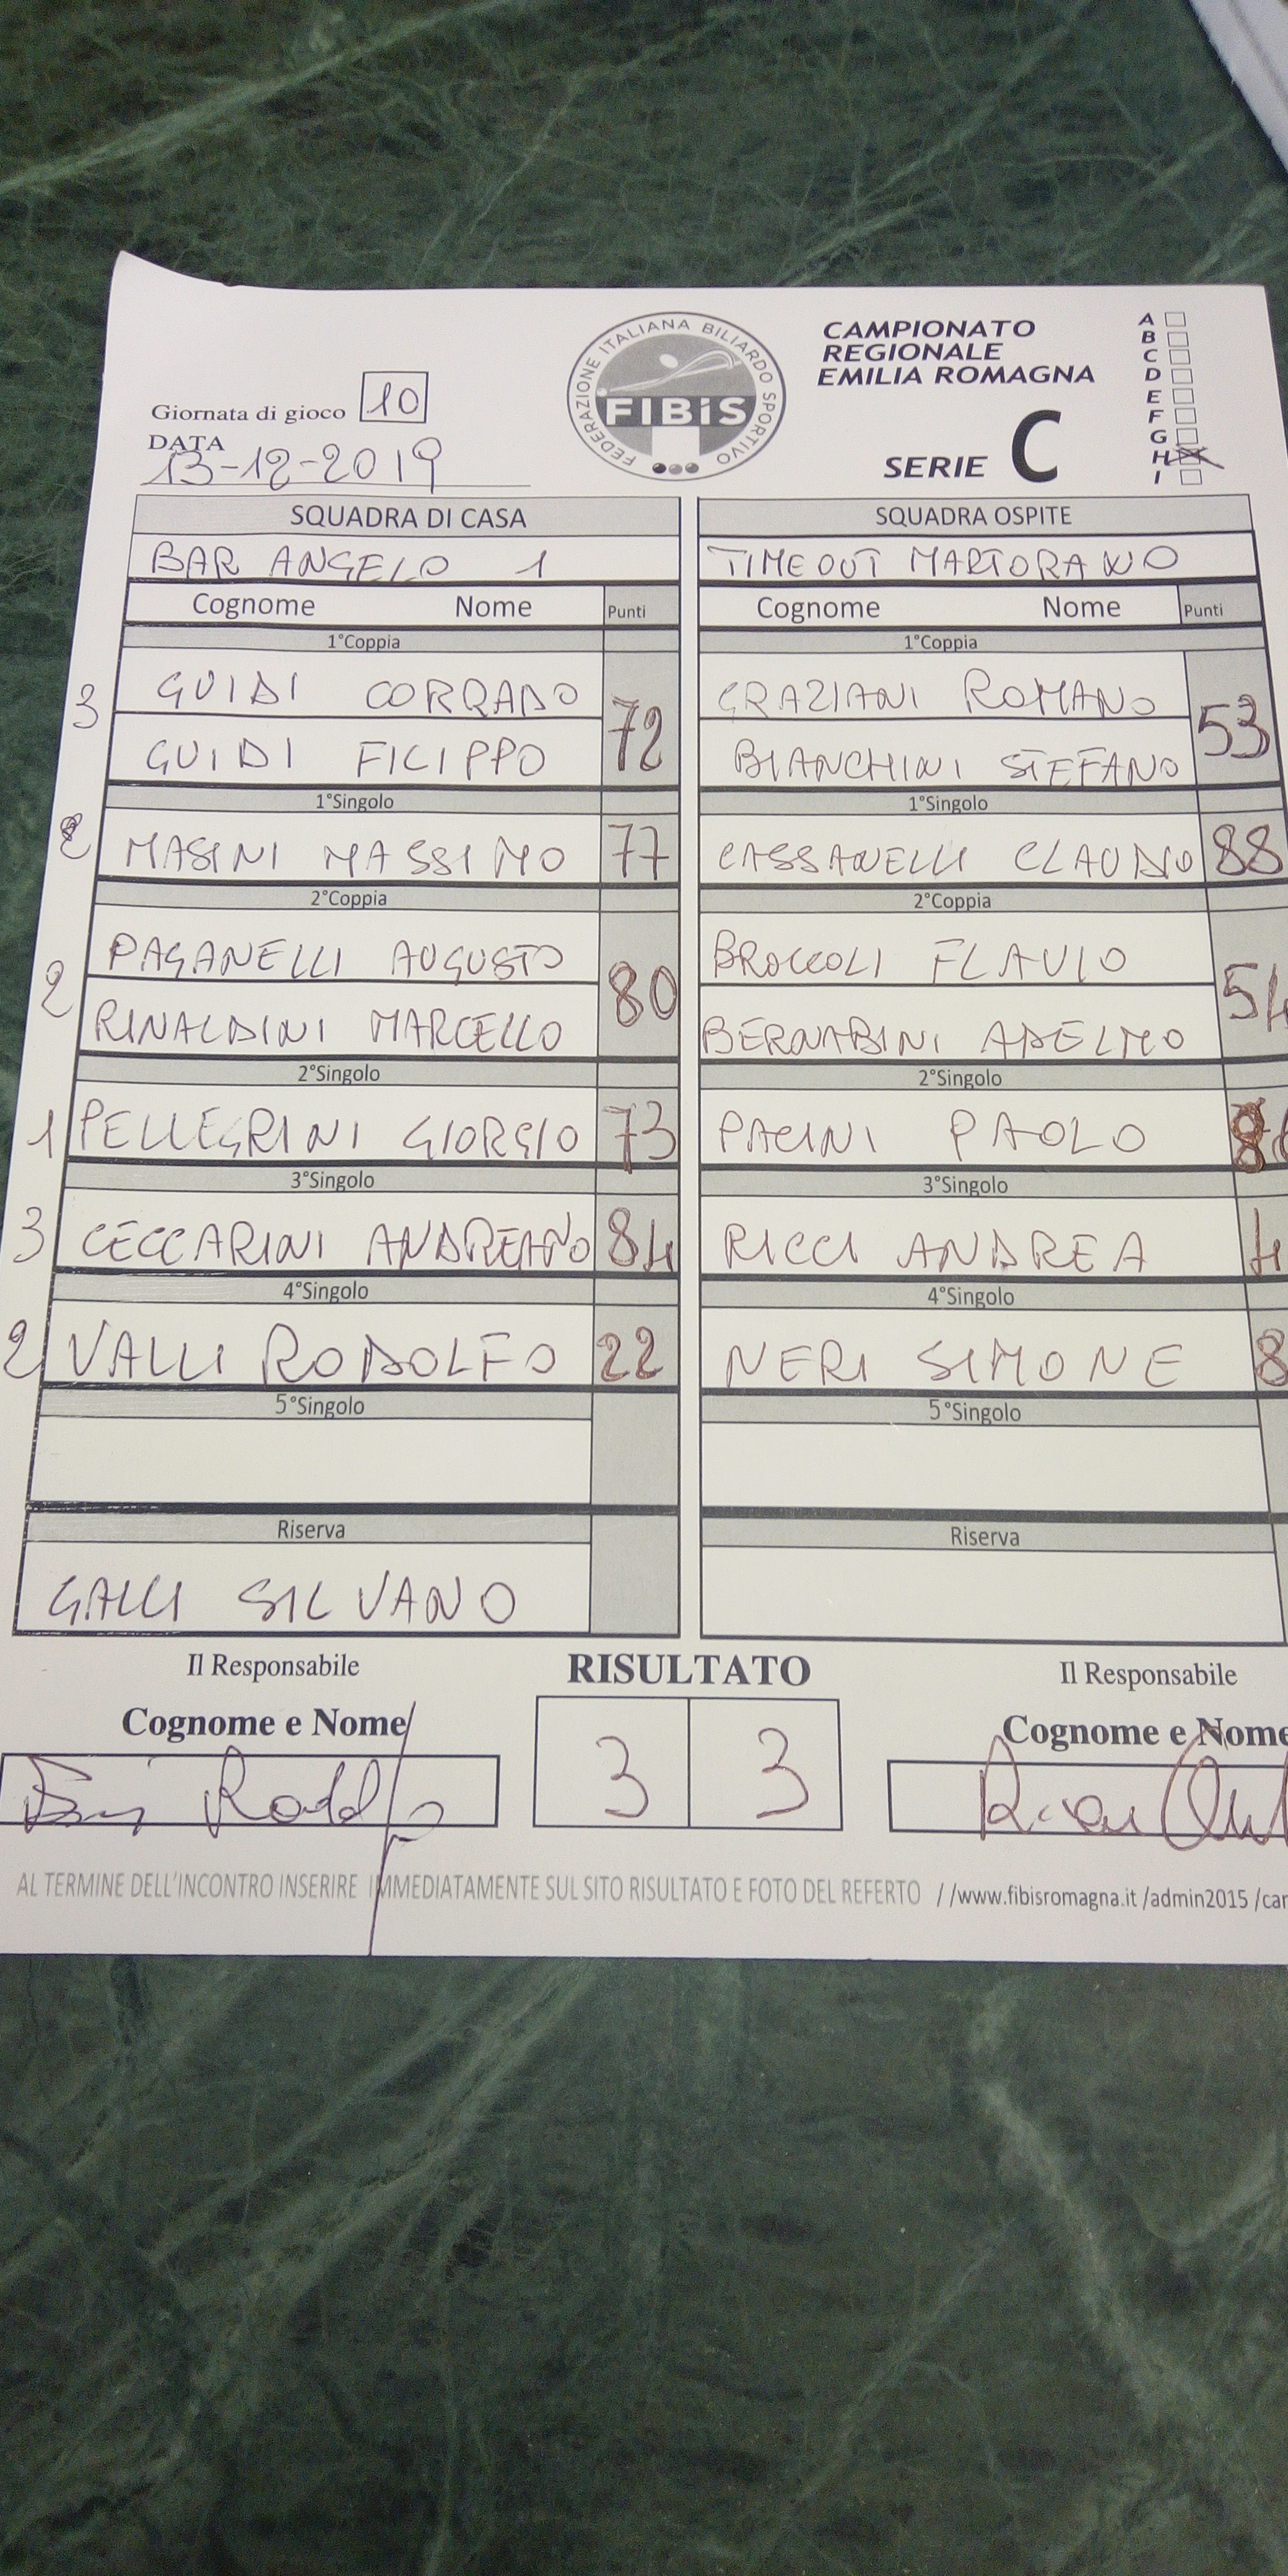 FEDERAZIONE ITALIANA BILIARDO SPORTIVO
FIBiS
CAMPIONATO
REGIONALE
EMILIA ROMAGNA
SERIE C
A
B
C
D
E
F
G
H
I
Giornata di gioco 10
DATA
13-12-2019
SQUADRA DI CASA SQUADRA OSPITE
BAR ANGELO 1 TIMEOUT MARTORANO
Cognome Nome Punti Cognome Nome Punti
1°Coppia 1°Coppia
3 GUIDI CORRADO 72 GRAZIANI ROMANO 53
GUIDI FILIPPO BIANCHINI STEFANO
1°Singolo 1°Singolo
MASINI MASSIMO 77 CASSANELLI CLAUDIO 88
2°Coppia 2°Coppia
2 PAGANELLI AUGUSTO 80 BROCCOLI FLAVIO 54
RINALDINI MARCELLO BERNABINI ADELMO
2°Singolo 2°Singolo
1 PELLEGRINI GIORGIO 73 PACINI PAOLO
3°Singolo 3°Singolo
3 CECCARINI ANDREANO 84 RICCI ANDREA 4
4°Singolo 4°Singolo
2 VALLI RODOLFO 22 NERI SIMONE 8
5°Singolo 5°Singolo
Riserva Riserva
GALLI SILVANO
Il Responsabile RISULTATO Il Responsabile
Cognome e Nome 3 3 Cognome e Nome
AL TERMINE DELL'INCONTRO INSERIRE IMMEDIATAMENTE SUL SITO RISULTATO E FOTO DEL REFERTO //www.fibisromagna.it/admin2015/car